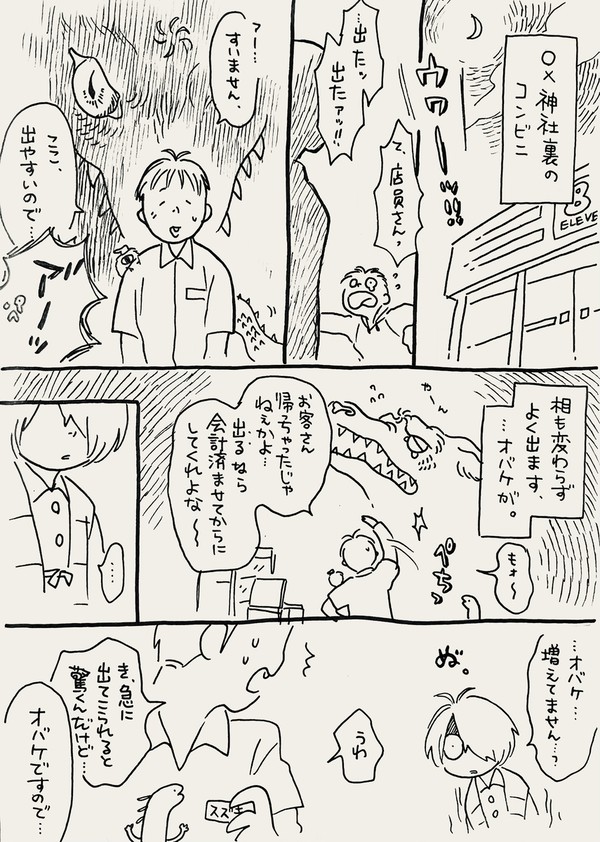 ○×神社裏の
コンビニ
8
ELEVE
ウワーーッ!!
て、店員さんっ
…出たッ
出たァッ!!
あー…
すいません、
ここ、
出やすいので…
アーーッ
相も変わらず
よく出ます、
…オバケが。
もォ〜
ぺちっ
やーん
お客さん
帰っちゃったじゃ
ねぇかよ…
出るなら
会計済ませてからに
してくれよな〜
…
…オバケ…
増えてません…?
ぬ。
うわ
き、急に
出てこられると
驚くんだけど…
スズキ
オバケですので…